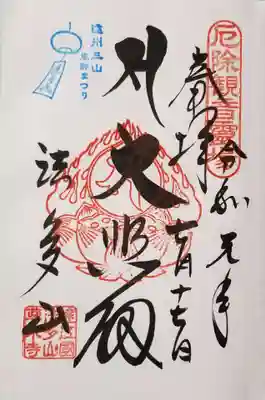 厄除観音霊場
奉拝
令和元年
七月十七日
大悲殿
遠州三山
風鈴まつり
法多山
法多山
尊永寺